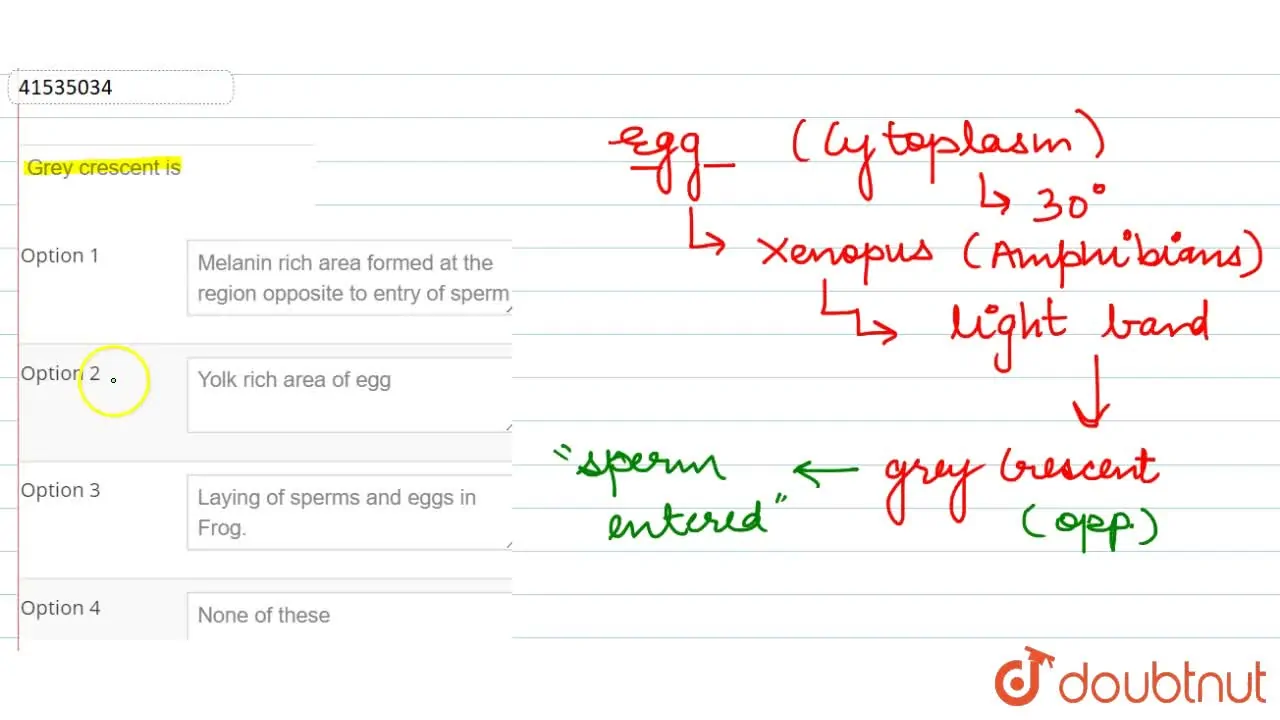 41535034
Grey crescent is
Option 1
Melanin rich area formed at the
region opposite to entry of sperm
Option 2
Yolk rich area of egg
Option 3
Laying of sperms and eggs in
Frog.
Option 4
None of these
egg (Cytoplasm)
↳ 30°
↳ Xenopus (Amphibians)
↳ light band
↓
"sperm ← grey crescent
entered" (opp.)
doubtnut